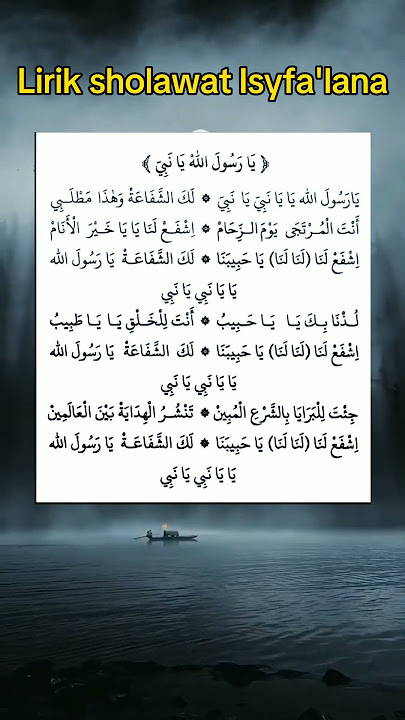 Lirik sholawat Isyfa'lana
﴿ يَا رَسُولَ اللهْ يَا نَبِيّ ﴾
يَارَسُولَ الله يَا يَا نَبِيّ يَا نَبِيّ ۞ لَكَ الشَّفَاعَةْ وَهٰذَا مَطْلَبِي
أَنْتَ الْمُرْتَجَى يَوْمَ الزِّحَامْ ۞ اِشْفَعْ لَنَا يَا يَا خَيْرَ الْأَنَامْ
اِشْفَعْ لَنَا (لَنَا لَنَا) يَا حَبِيبَنَا ۞ لَكَ الشَّفَاعَةْ يَا رَسُولَ الله
يَا يَا نَبِي يَا نَبِي
لُذْنَا بِكَ يَا يَا حَبِيبُ ۞ أَنْتَ لِلْخَلْقِ يَا يَا طَبِيبُ
اِشْفَعْ لَنَا (لَنَا لَنَا) يَا حَبِيبَنَا ۞ لَكَ الشَّفَاعَةْ يَا رَسُولَ الله
يَا يَا نَبِي يَا نَبِي
جِئْتَ لِلْبَرَايَا بِالشَّرْعِ الْمُبِينْ ۞ تَنْشُرُ الْهِدَايَةْ بَيْنَ الْعَالَمِينْ
اِشْفَعْ لَنَا (لَنَا لَنَا) يَا حَبِيبَنَا ۞ لَكَ الشَّفَاعَةْ يَا رَسُولَ الله
يَا يَا نَبِي يَا نَبِي